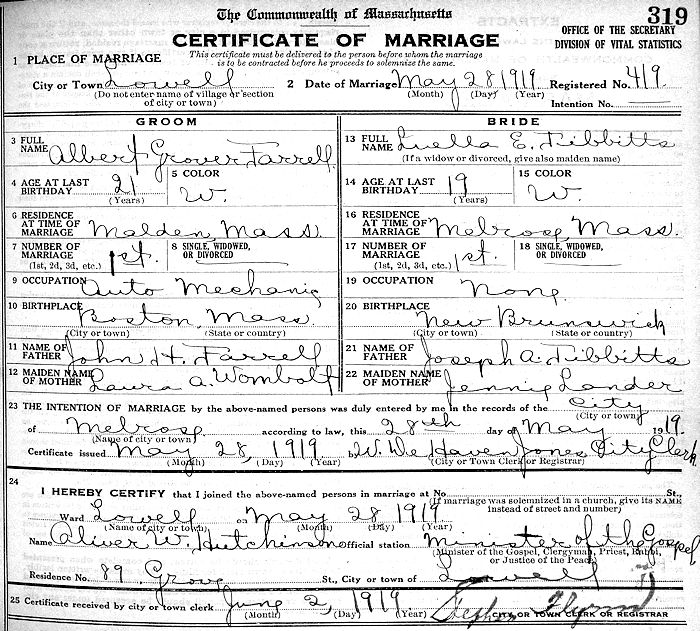 The Commonwealth of Massachusetts
319
CERTIFICATE OF MARRIAGE
OFFICE OF THE SECRETARY
DIVISION OF VITAL STATISTICS
This certificate must be delivered to the person before whom the marriage
is to be contracted before he proceeds to solemnize the same.
1 PLACE OF MARRIAGE
City or Town Lowell 2 Date of Marriage May 28 1919 Registered No. 419
(Do not enter name of village or section of city or town) (Month) (Day) (Year) Intention No.
GROOM BRIDE
3 FULL NAME Albert Grover Farrell
13 FULL NAME Luella E. Tibbitts
(If a widow or divorced, give also maiden name)
4 AGE AT LAST BIRTHDAY 21 (Years) 5 COLOR W.
14 AGE AT LAST BIRTHDAY 19 (Years) 15 COLOR W.
6 RESIDENCE AT TIME OF MARRIAGE Malden, Mass.
16 RESIDENCE AT TIME OF MARRIAGE Melrose, Mass.
7 NUMBER OF MARRIAGE (1st, 2d, 3d, etc.) 1st. 8 SINGLE, WIDOWED, OR DIVORCED
17 NUMBER OF MARRIAGE (1st, 2d, 3d, etc.) 1st. 18 SINGLE, WIDOWED OR DIVORCED
9 OCCUPATION Auto Mechanic
19 OCCUPATION None
10 BIRTHPLACE Boston, Mass.
(City or town) (State or country)
20 BIRTHPLACE New Brunswick
(City or town) (State or country)
11 NAME OF FATHER John H. Farrell
21 NAME OF FATHER Joseph A. Tibbitts
12 MAIDEN NAME OF MOTHER Laura A. Wombolt
22 MAIDEN NAME OF MOTHER Jennie Lander
23 THE INTENTION OF MARRIAGE by the above-named persons was duly entered by me in the records of the City
(City or town)
of Melrose according to law, this 28th day of May 1919.
(Name of city or town)
Certificate issued May 28, 1919 by W. De Haven Jones City Clerk
(Month) (Day) (Year) (City or Town Clerk or Registrar)
24
I HEREBY CERTIFY that I joined the above-named persons in marriage at No. St.,
(If marriage was solemnized in a church, give its NAME instead of street and number)
Ward Lowell on May 28 1919
(Name of city or town) (Month) (Day) (Year)
Name Oliver W. Hutchinson official station Minister of the Gospel
(Minister of the Gospel, Clergyman, Priest, Rabbi, or Justice of the Peace)
Residence No. 89 Grove St., City or town of Lowell
25 Certificate received by city or town clerk June 2, 1919. Stephen Flynn
(Month) (Day) (Year) CITY OR TOWN CLERK OR REGISTRAR